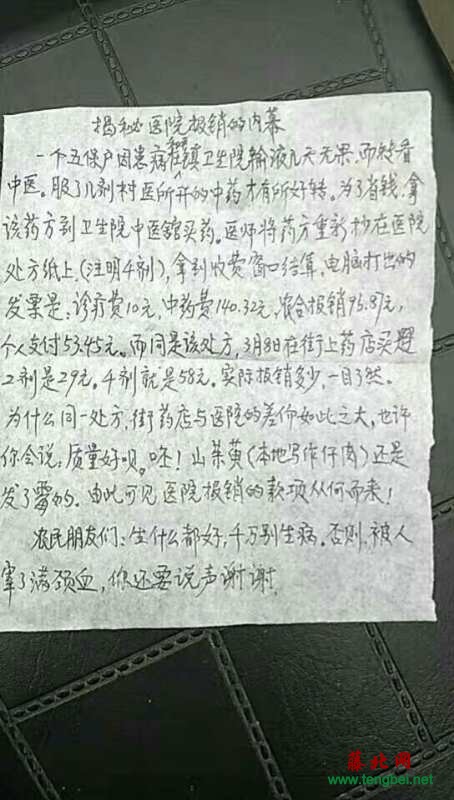 揭秘医院报销的内幕
一个五保户因患病在镇卫生院输液几天无果,而转看
中医。服了几剂村医所开的中药才有所好转。为了省钱,拿
该药方到卫生院中医馆买药。医师将药方重新抄在医院
处方纸上,(注明4剂),拿到收费窗口结算,电脑打出的
发票是:诊疗费10元,中药费140.32元,农合报销96.87元,
个人支付53.45元。而同是该处方,3月8日在街上药店买
2剂是29元。4剂就是58元。实际报销多少,一目了然。
为什么同一处方,街药店与医院的差价如此之大,也许
你会说,质量好呗。呸!山茱萸(本地写作仔肉)还是
发了霉的。由此可见医院报销的款项从何而来!
农民朋友们:生什么都好,千万别生病。否则,被人
宰了满颈血,你还要说声谢谢.
藤北网
www.tengbei.net